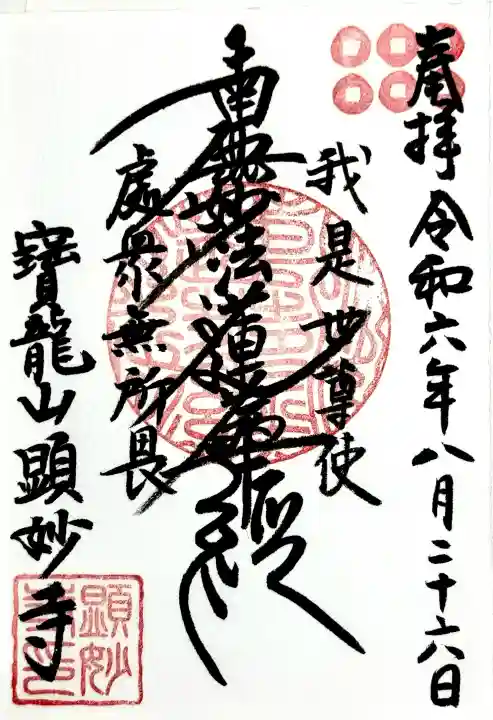 奉拝 令和六年八月二十六日
我是世尊使
南無妙法蓮華経
處衆無所畏
寳龍山顕妙寺
顕妙